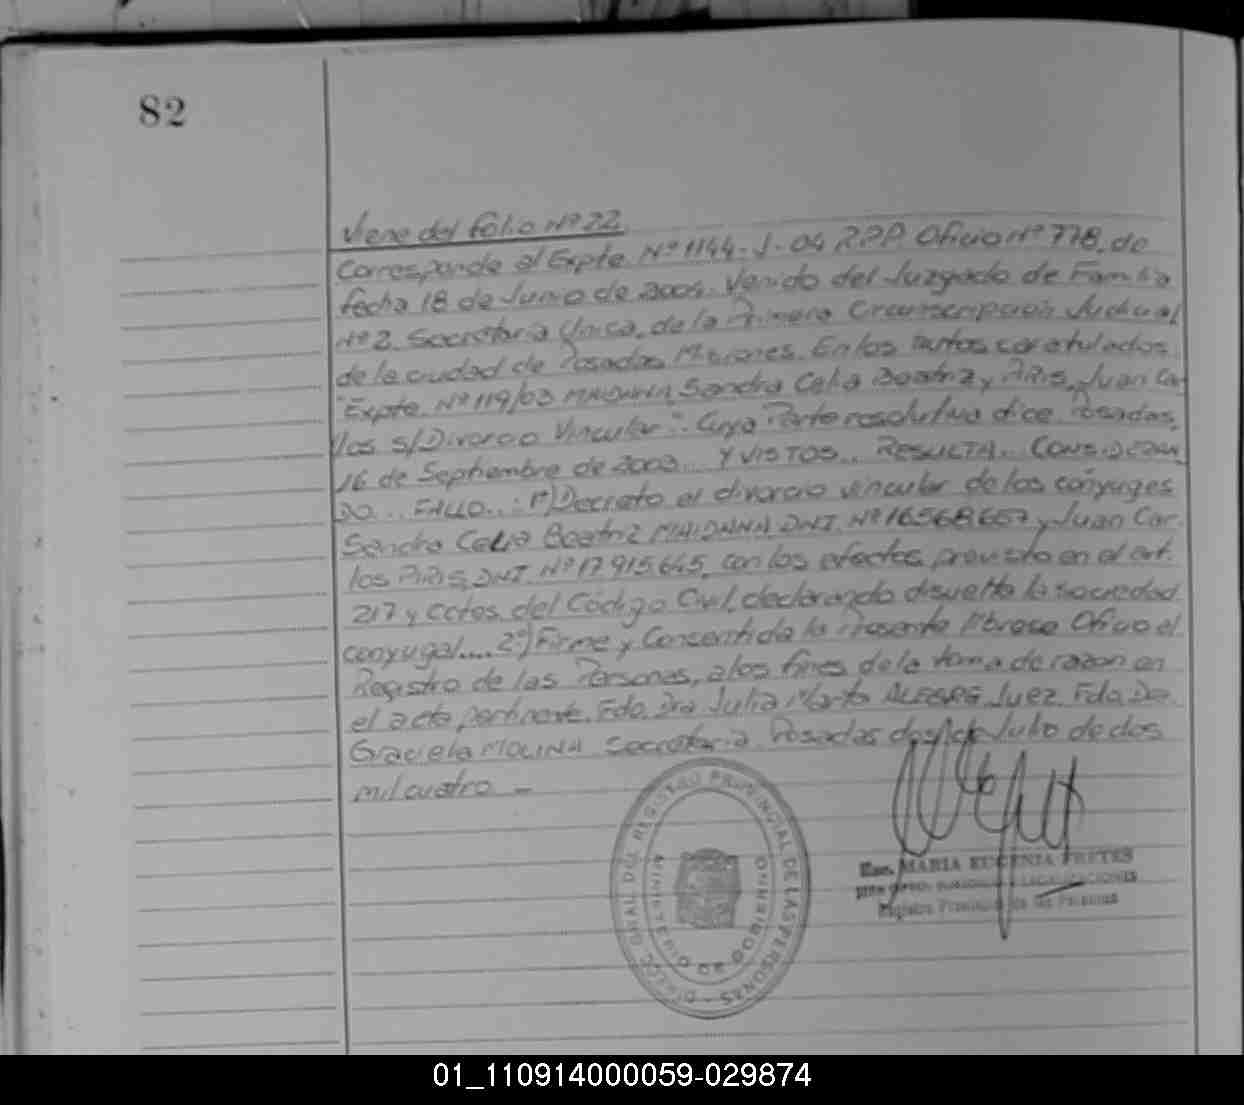 82
Viene del folio Nº 22
Corresponde al Expte. Nº 1144-J-04 R.P.P. Oficio Nº 778, de
fecha 18 de Junio de 2004. Venido del Juzgado de Familia
Nº 2. Secretaria Única, de la Primera Circunscripción Judicial
de la ciudad de Posadas Misiones. En los autos caratulados
"Expte. Nº 119/03 MAIDANA, Sandra Celia Beatriz y PIRIS, Juan Car
los s/Divorcio Vincular". Cuya Parte resolutiva dice Posadas,
16 de Septiembre de 2003... Y VISTOS... RESULTA... CONSIDERAN
DO... FALLO...: 1º) Decreto el divorcio vincular de los cónyuges
Sandra Celia Beatriz MAIDANA, DNI. Nº 16568657 y Juan Car
los PIRIS, DNI. Nº 17915645, con los efectos previsto en el art.
217 y cctes. del Código Civil, declarando disuelta la sociedad
conyugal.... 2º) Firme y Consentida la Presente líbrese Oficio al
Registro de las Personas, a los fines de la toma de razon en
el acta pertinente. Fdo. Dra Julia Marta ALEGRE Juez. Fdo. Dra.
Graciela MOLINA Secretaria. Posadas dos de Julio de dos
mil cuatro. -
REGISTRO PROVINCIAL DE LAS PERSONAS
MINISTERIO DE GOBIERNO
MARIA EUGENIA FRETES
LEGALIZACIONES
Registro Provincial de las Personas
01_110914000059-029874